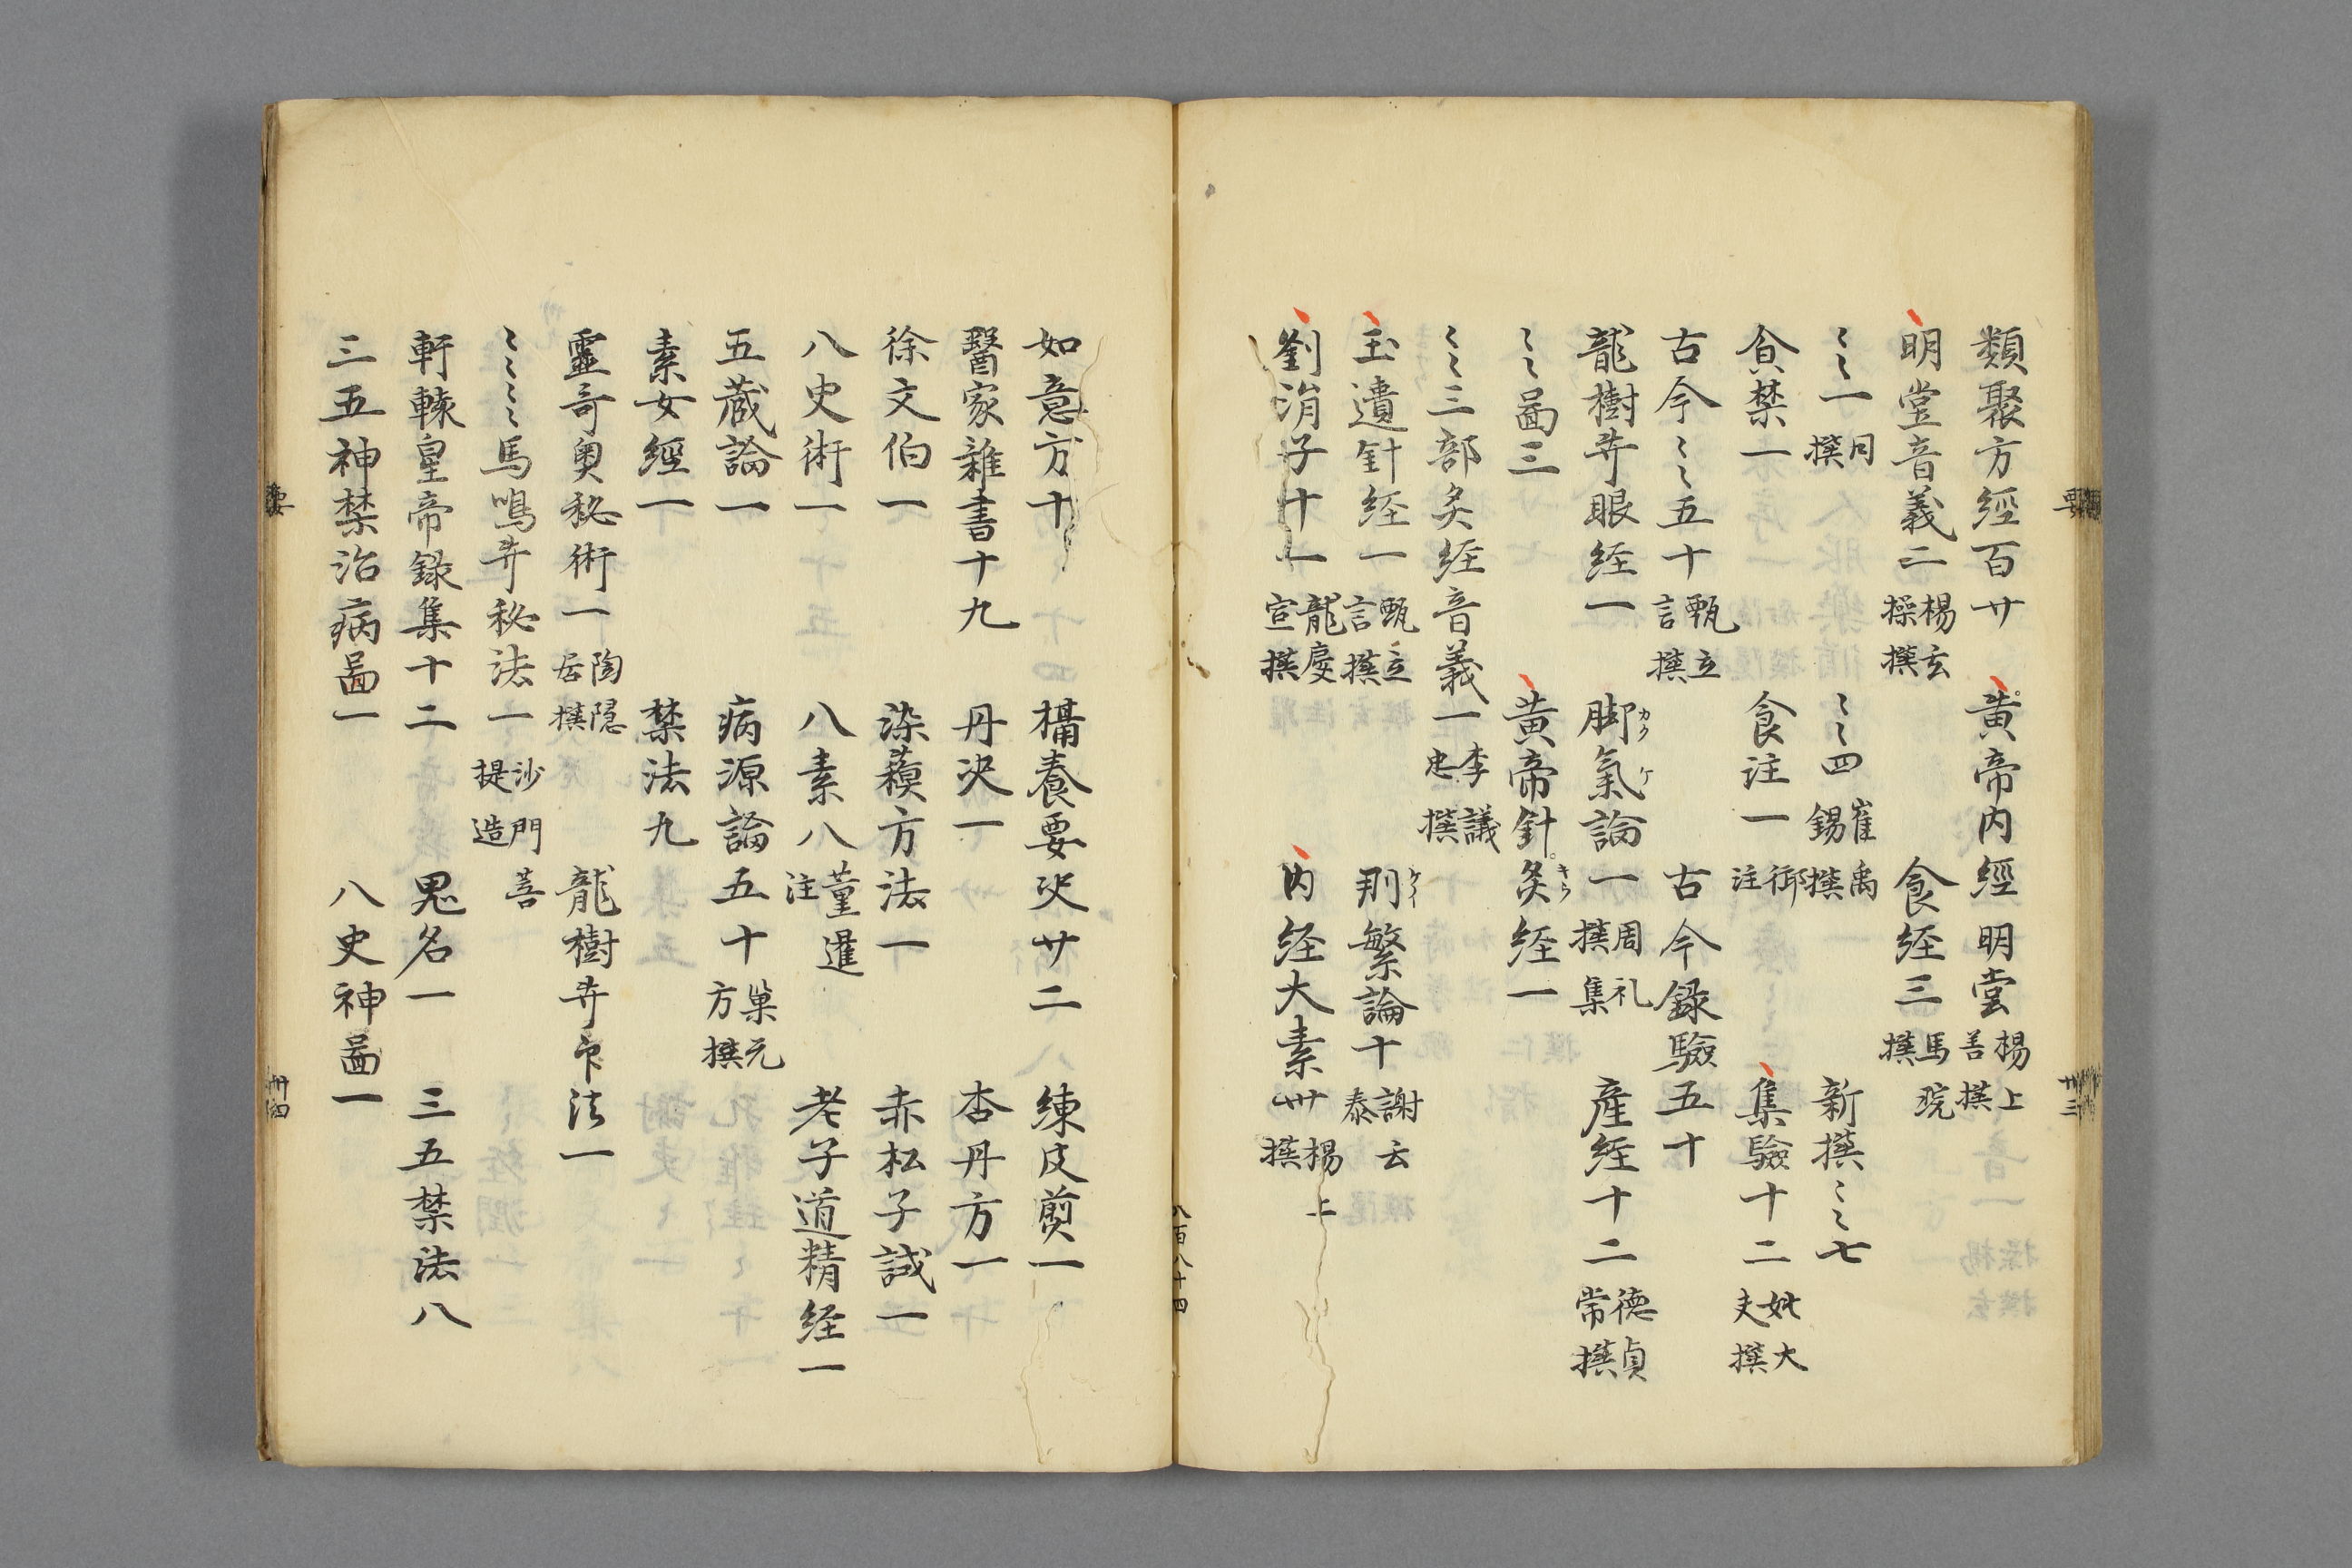 類聚方經百廿 黄帝内經明堂 楊上善撰
明堂音義二 楊玄操撰 食経三 馬琬撰
〻〻一 同撰 〻〻四 崔禹錫撰 新撰〻〻七
食禁一 食注一 御注 集驗十二 姚大夫撰
古今〻〻五十 甄立言撰 古今録驗五十
龍樹𦬇眼経一 脚氣論一 周礼撰集 産経十二 德貞常撰
カク ケ
〻〻啚三 黄帝針灸経一
キウ
〻〻三部灸経音義一 李議忠撰
玉遺針経一 甄立言撰 刑繁論十 謝云泰
ケイ
劉涓子十一 龍慶宣撰 内経大素卅 楊上撰
要
卅三
八百八十四
如意方十 櫹養要决廿二 練皮煎一
醫家雜書十九 丹决一 杏丹方一
徐文伯一 染藙方法一 赤松子誡一
八史術一 八素八 董暹注 老子道精経一
五蔵論一 病源論五十 巢元方撰
素女經一 禁法九
靈奇奥秘術一 陶隠居撰 龍樹𦬇印法一
〻〻〻〻馬鳴𦬇秘法一 沙門菩提造
軒轅皇帝録集十二 鬼名一 三五禁法八
三五神禁治病啚一 八史神啚一
要
卅四